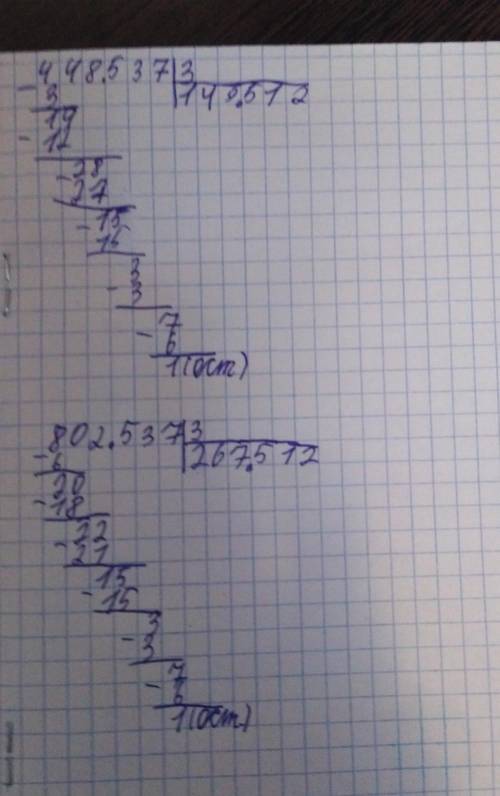 - 448.537|3
3 149.512
14
- 12
- 28
27
- 15
15
3
- 3
- 7
6
1(ост)
- 802.537|3
6 267.512
20
- 18
- 22
21
15
- 15
3
- 3
7
- 6
1(ост)